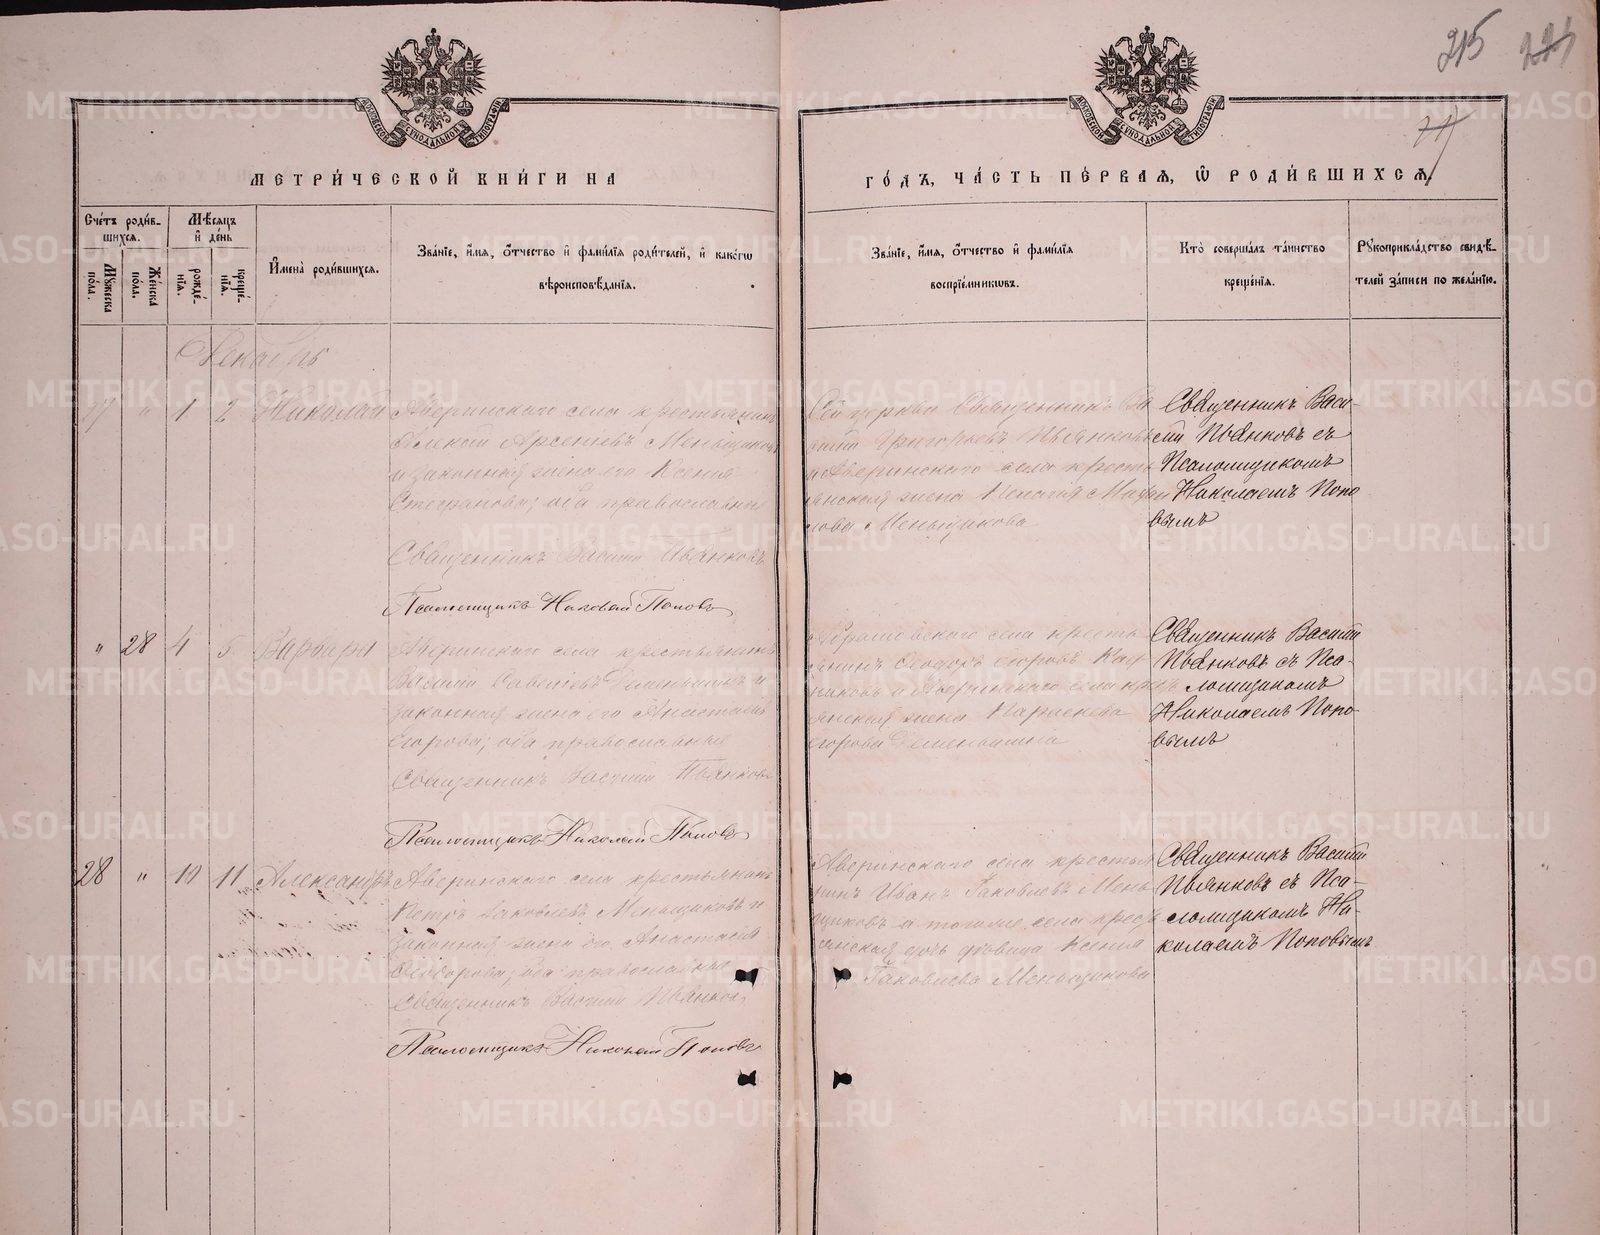 215
МОСКОВСКОЙ СѴНОДАЛЬНОЙ ТИПОГРАФІИ
МОСКОВСКОЙ СѴНОДАЛЬНОЙ ТИПОГРАФІИ
МЕТРИ́ЧЕСКОЙ КНИ́ГИ НА
ГО́ДЪ, ЧА́СТЬ ПЕ́РВАѦ, Ѡ РОДИ́ВШИХСѦ.
Сче́тъ роди́в-
шихсѧ.
Мꙋжеска по́ла.
Же́нска по́ла.
Мѣсѧцъ и де́нь
рожде́-
нїѧ.
креще́-
нїѧ.
И҆мена̀ роди́вшихсѧ.
Зва́нїе, и҆́мѧ, ѻ҆́тчество и҆ фами́лїѧ роди́телей, и҆ како́гѡ
вѣроисповѣ́данїѧ.
Зва́нїе, и҆́мѧ, ѻ҆́тчество и҆ фами́лїѧ
воспрїе́мникѡвъ.
Кто̀ соверша́лъ та́инство
креще́нїѧ.
Рꙋкоприкла́дство свидѣ́-
телей за́писи по жела́нїю.
Декабрь
27 " 1 2 Николай
Аверинскаго села крестьянинъ
Алексій Арсеніевъ Меньщиковъ
и законная жена его Ксенія
Стефанова; оба православные
Священникъ Василій Пьянковъ
Псаломщикъ Николай Поповъ
Сей церкви Священникъ Ва
силій Григорьевъ Пьянковъ
и Аверинскаго села кресть
янская жена Пелагія
Меньщикова
Священникъ Васи-
лій Пьянковъ съ
Псаломщикомъ
Николаемъ Попо
вымъ
" 28 4 5 Варвара
Аверинскаго села крестьянинъ
Василій Савеліевъ и
законная жена его Анастасія
Егорова; оба православные
Священникъ Василій Пьянковъ
Псаломщикъ Николай Поповъ
села кресть
янинъ Ѳеодоръ Егоровъ
и Аверинскаго села крест
янская жена Параскева
Егорова
Священникъ Василій
Пьянковъ съ Пса-
ломщикомъ
Николаемъ Попо-
вымъ
28 " 10 11 Александръ
Аверинскаго села крестьянинъ
Петръ Іаковлевъ Меньщиковъ и
законная жена его Анастасія
Ѳеодорова; оба православные
Священникъ Василій Пьянковъ
Псаломщикъ Николай Поповъ
Аверинскаго села крестья
нинъ Иванъ Іаковлевъ Мень
щиковъ и тогоже села крест
янская дочь дѣвица Ксенія
Іаковлева Меньщикова
Священникъ Василій
Пьянковъ съ Пса-
ломщикомъ Ни-
колаемъ Поповымъ
METRIKI.GASO-URAL.RU